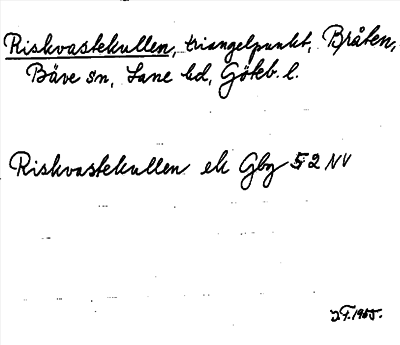 Riskvastekullen, triangelpunkt, Bråten,
Bäve sn, Lane hd, Göteb. l.
Riskvastekullen ek Gbg 52 NV